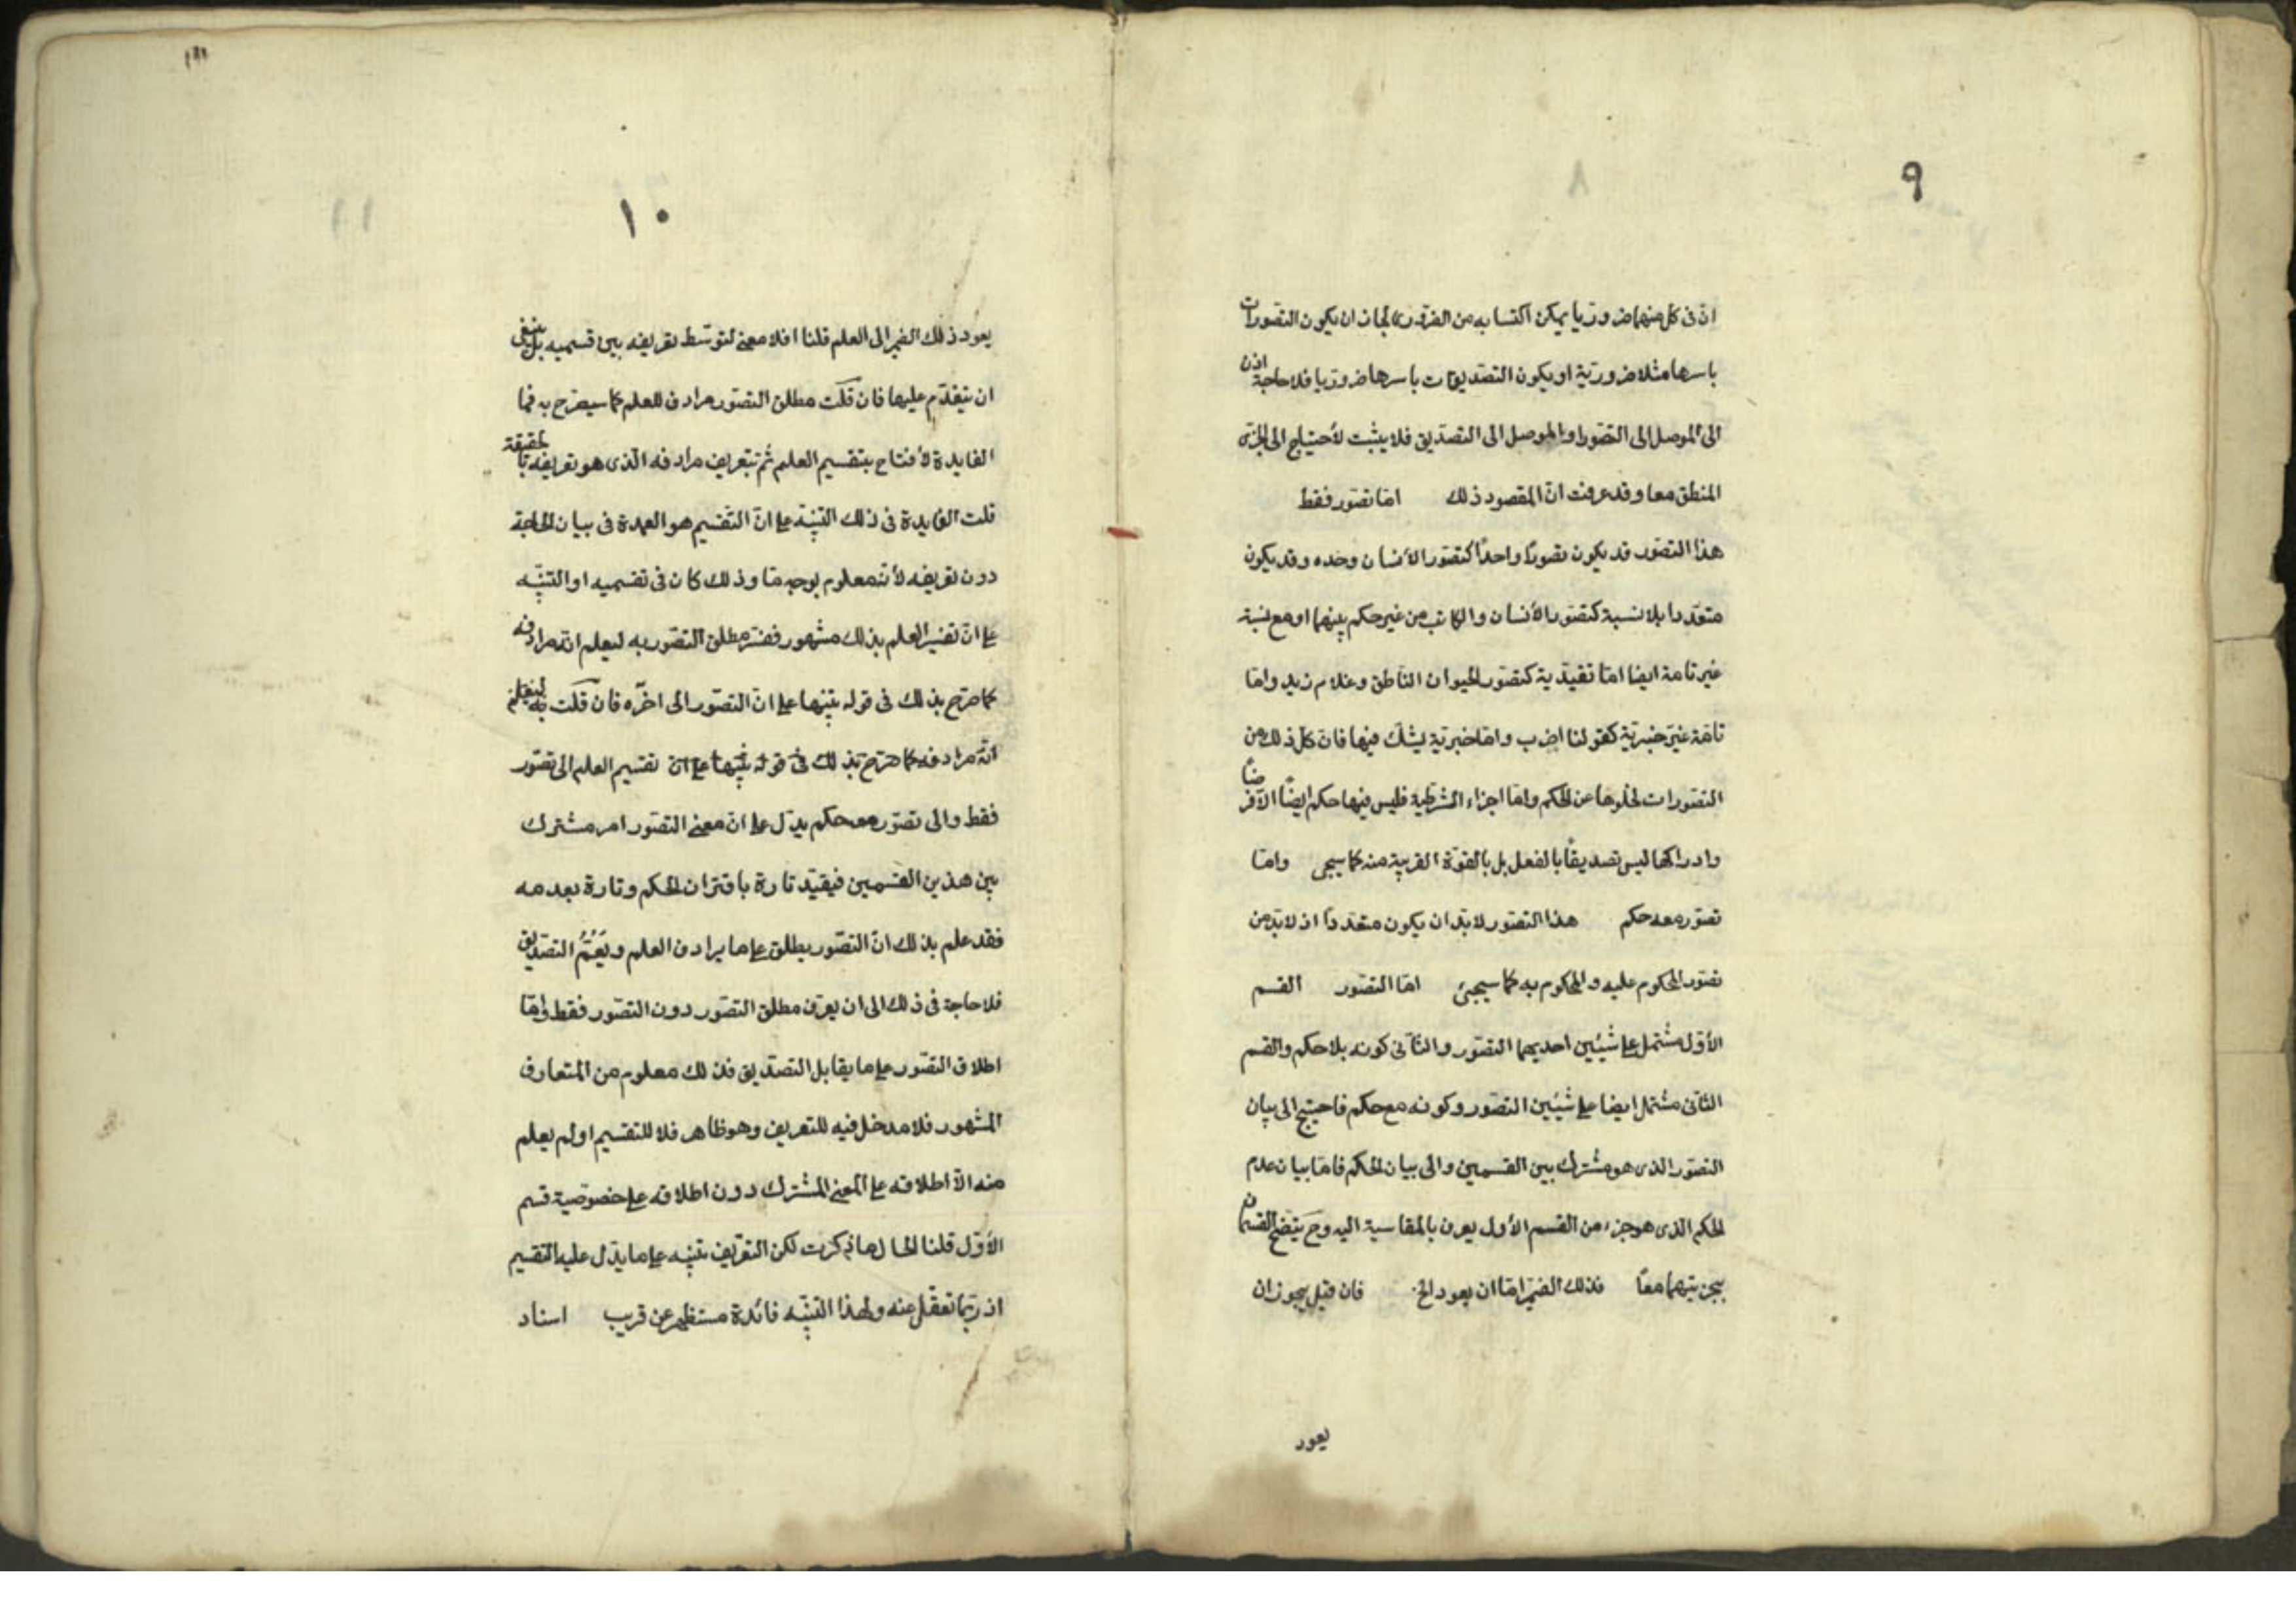 ٩
ان فى كل منهما ضروريا يمكن اكتسابه من الضرورى لجاز ان يكون التصورات
باسرها مثلا ضرورية او يكون التصديقات باسرها ضروريا فلا حاجة اذن
الى الموصل الى التصور او الموصل الى التصديق فلا يثبت لأحتياج الى الجزئى
المنطق معا وقد عرفت انّ المقصود ذلك امّا تصوّر فقط
هذا التصوّر قد يكون تصورًا واحدًا كتصوّر الأنسان وحده وقد يكون
متعدّدا بلا نسبة كتصوّر الأنسان والكاتب من غير حكم بينهما او مع نسبة
غير تامة ايضا امّا تقيدية كتصوّر الحيوان الناطق وغلام زيد وامّا
تامّة غير خبريّة كقولنا اضرب وامّا خبريّة يشكّ فيها فان كل ذلك من
التصورات لخلوها عن الحكم وامّا اجزاء الشرطية فليس فيها حكم ايضًا الّا فرضًا
وادراكها ليس تصديقًا بالفعل بل بالقوّة القريبة منه كما سيجى وامّا
تصوّر معه حكم هذا التصوّر لا بدّ ان يكون متعددًا اذ لا بدّ من
تصوّر المحكوم عليه والمحكوم به كما سيجئ امّا التصوّر القسم
الأوّل مشتمل على شيئين احديهما التصوّر والثّانى كونه بلا حكم والقسم
الثّانى مشتمل ايضا على شيئين التصوّر وكونه مع حكم فاحتيج الى بيان
التصوّر الذى هو مشترك بين القسمين والى بيان الحكم فامّا بيان عدم
الحكم الذى هو جزء من القسم الأول يعرف بالمقاسية اليه وح يتضح القسمان
بجزئيتهما معًا فذلك الضمير امّا ان يعود الخ فان قيل يجوز ان
يعود
١٠
يعود ذلك الضمير الى العلم قلنا افلا معنى لتوسّط تعريفه بين قسميه بل ينبغى
ان يتقدّم عليها فان قلت مطلق التصوّر مرادف للعلم كما سيصرّح به فما
الفايدة لأفتتاح بتقسيم العلم ثمّ بتعريف مرادفه الّذى هو تعريفه بالحقيقة
قلت الفايدة فى ذلك التنبّيه على انّ التقسيم هو العمدة فى بيان الحاجة
دون تعريفه لأنّه معلوم بوجه مّا وذلك كان فى تقسميه او التنبّيه
على انّ تفسير العلم بذلك مشهور ففسّر مطلق التصوّر به ليعلم انّه مرادفه
كما صرّح بذلك فى قوله تنبّيها على انّ التصوّر الى اخرّه فان قلت
انّه مرادفه كما صرّح بذلك فى قوله تنبّيها على انّ تقسيم العلم الى تصوّر
فقط والى تصوّر معه حكم يدّل على انّ معنى التصوّر امر مشترك
بين هذين القسمين فيقيّد تارة باقتران الحكم وتارة بعدمه
فقد علم بذلك انّ التصوّر يطلق على ما يرادف العلم ويَعُمُّ التصدّيق
فلا حاجة فى ذلك الى ان يعرّف مطلق التصوّر دون التصوّر فقط وامّا
اطلاق التصّور على ما يقابل التصدّيق فذلك معلوم من المتعارف
المشهور فلا مدخل فيه للتعريف وهو ظاهر فلا للتقسيم اولم يعلم
منه الّا اطلاقه على المعنى المشترك دون اطلاقه على خصوصيّة قسم
الأوّل قلنا الحال ما ذكرت لكن التعرّيف تنبّيه على ما يدّل عليه التقسيم
اذ ربّما تغفّل عنه ولهذا التنبّيه فائدة ستظهر عن قريب اسناد